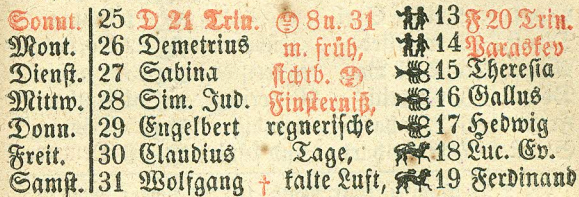 Sonnt. 25 D 21 Trin. 8 u. 31 13 F 20 Trin.
Mont. 26 Demetrius m. früh, 14 Paraskev
Dienst. 27 Sabina sichtb. 15 Theresia
Mittw. 28 Sim. Jud. Finsterniß, 16 Gallus
Donn. 29 Engelbert regnerische 17 Hedwig
Freit. 30 Claudius Tage, 18 Luc. Ev.
Samst. 31 Wolfgang † kalte Luft, 19 Ferdinand